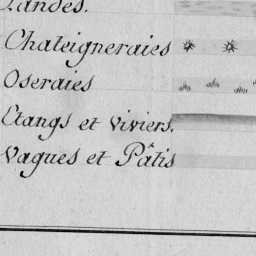 Landes.
Chateigneraies
Oseraies
Etangs et Viviers.
Vagues et Pâtis